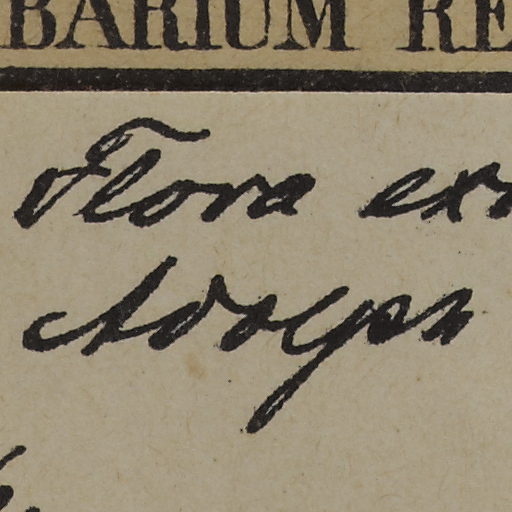 BARIUM RE
Flora ex
Adolph